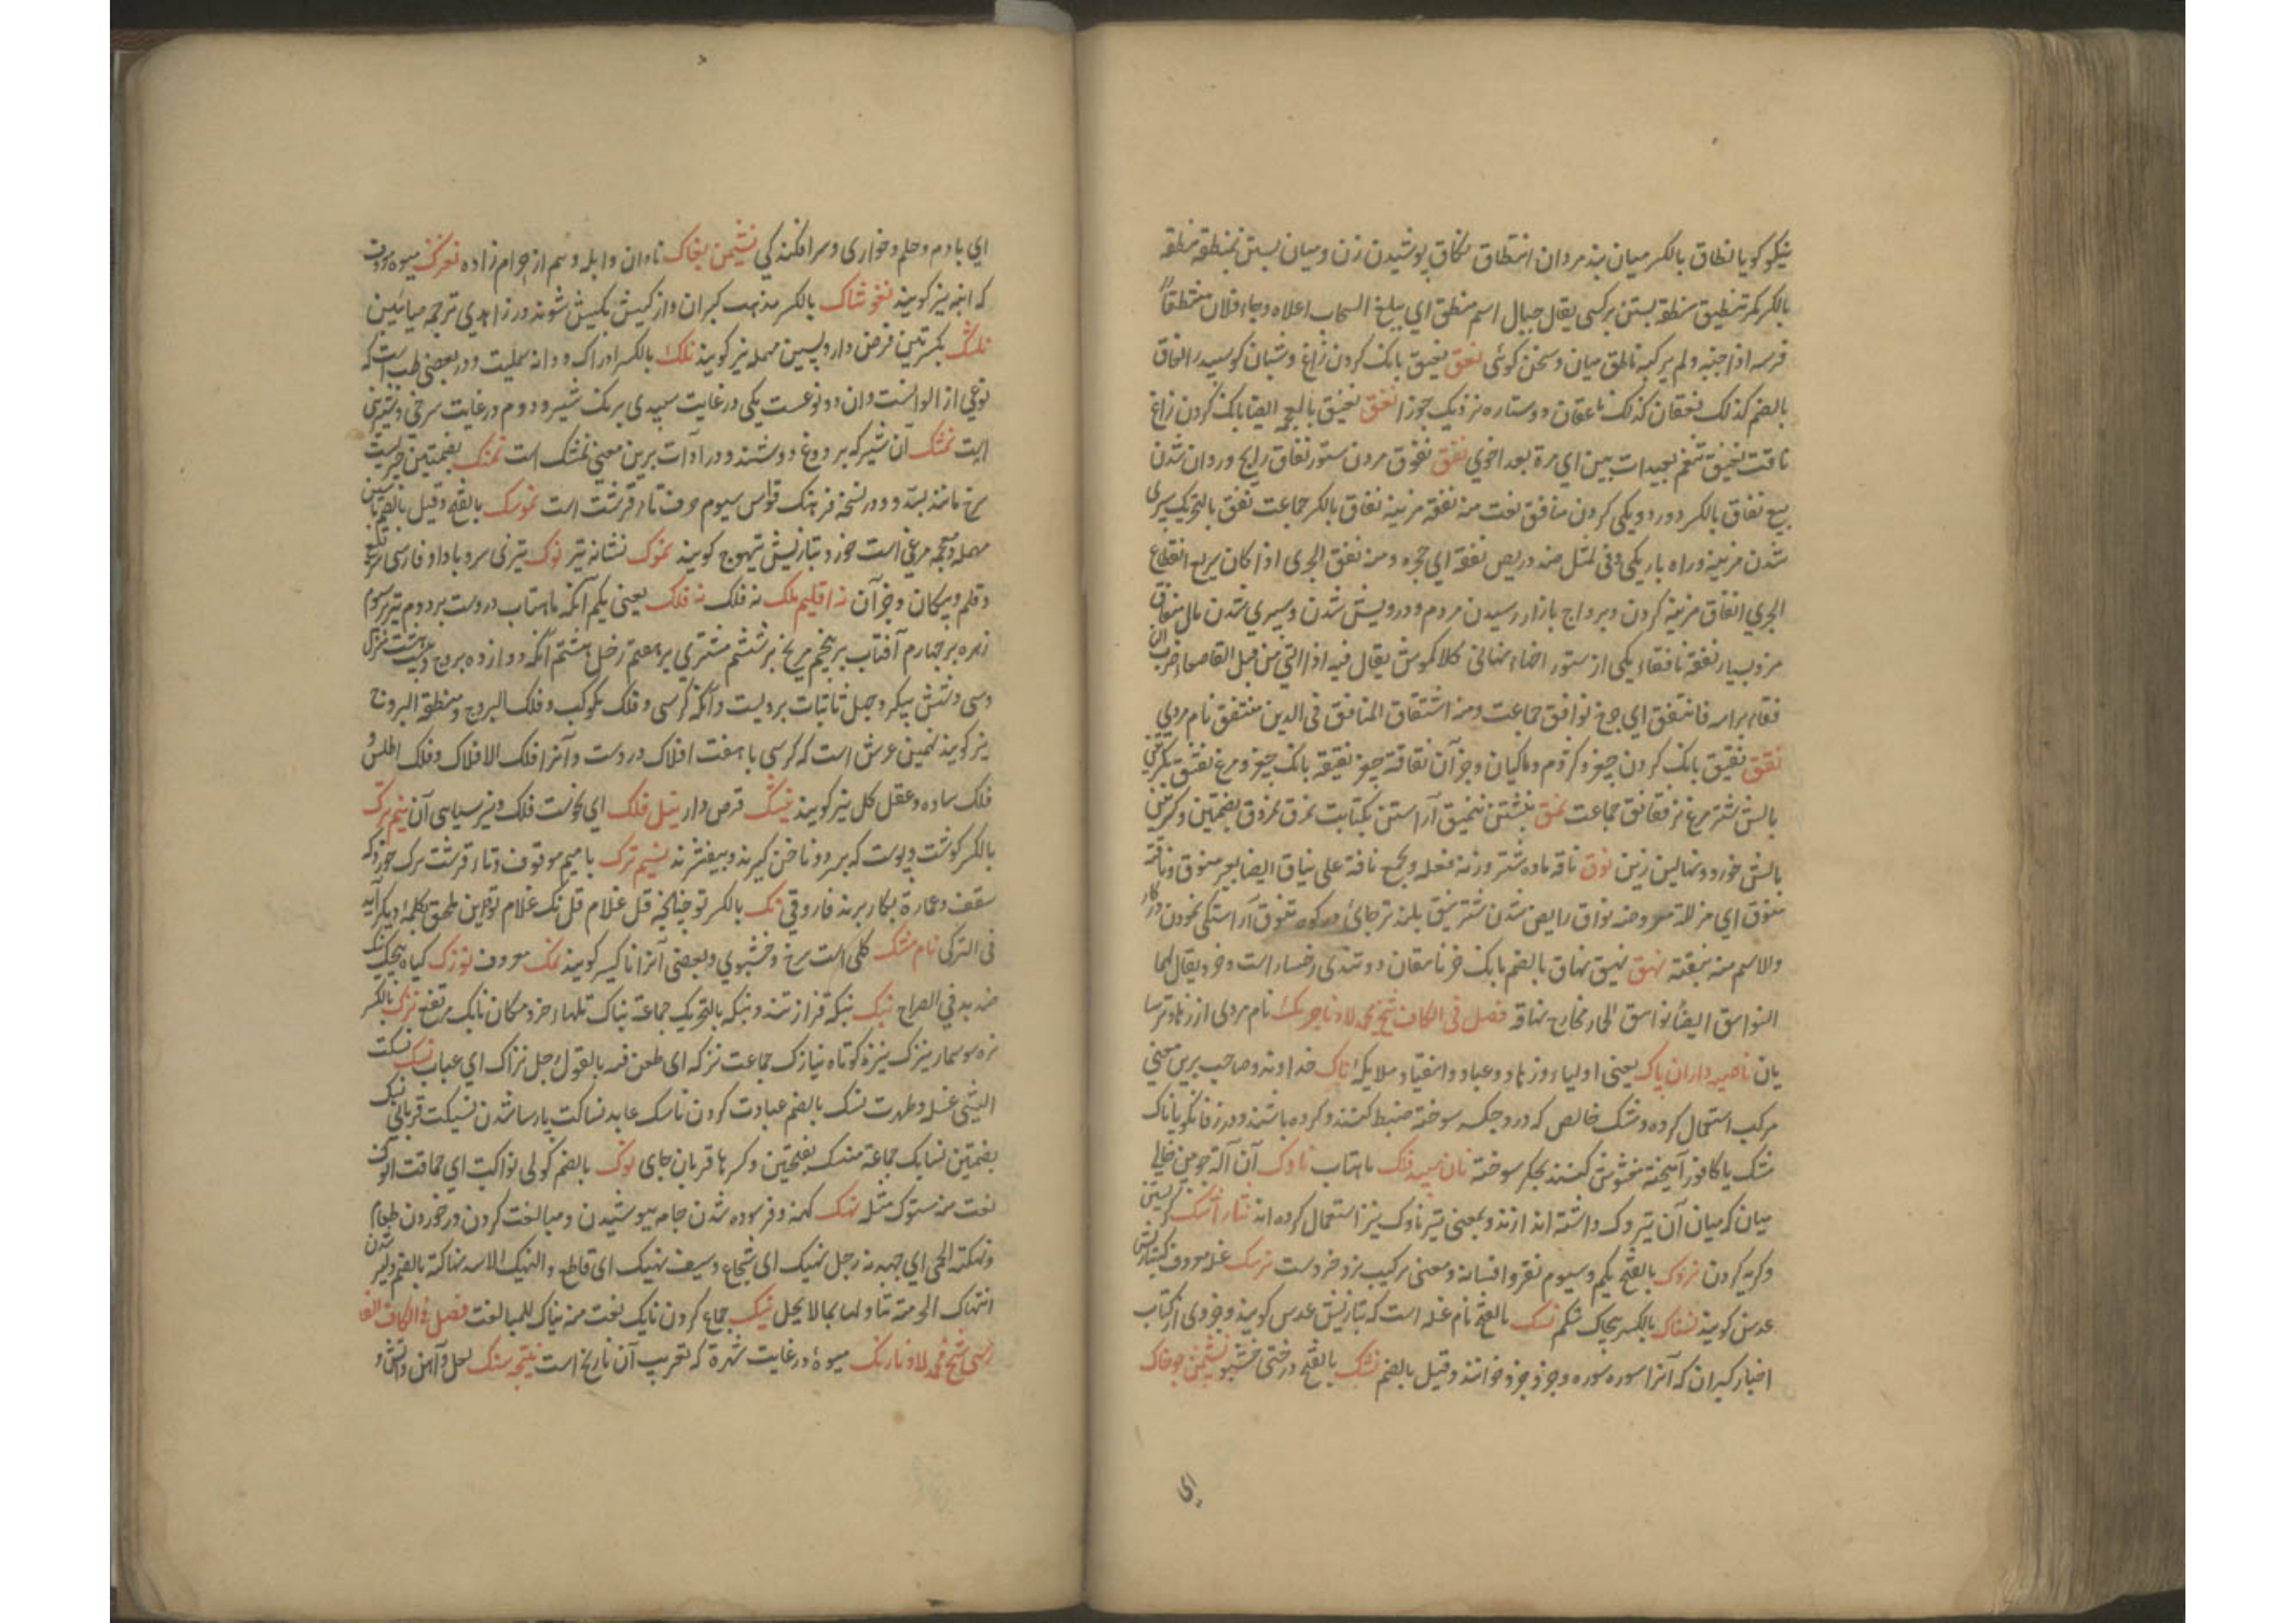 نیکو کویا نطاق بالکسر میان بند مردان انتطاق نکاق پوشیدن زن و میان بستن بمنطقه منطقه
بالکسر کمر تنطیق منطقه بستن برکسی یقال جبال اسم منطق ای یبلغ السحاب اعلاه وجاء فلان منتطقاً
فرسه اذا جنبه ولم یرکبه ناطق میان و سخن کوئی نعق نعیق بانک کردن زاغ و شبان کوسپند را نعاق
بالضم کذلک نعقان کذلک ناعقان دو ستاره نزدیک جوزا نغق نغیق بالمعجمه ایضا بانک کردن زاغ
ناقت نغیق تبغم بعیدات بین ای مرة بعد اخری نفق نفوق مردن ستور نفاق رایج و روان شدن
بیع نفاق بالکسر دورویی کردن منافق نعت منه نفقه هزینه نفاق بالکسر جماعت نفق بالتحریک سپری
شدن هزینه و راه باریک وفی المثل ضل دریص نفقه ای جحره ومنه نفق الجری اذا کان سریع انقطاع
الجری انفاق هزینه کردن و برواج بازار رسیدن مردم و درویش شدن و سپری شدن مال منفاق
مرد بسیار نفقه نافقاء یکی از سوراخهاء نهانی کلاکموش یقال فیه اذا اتی من قبل القاصعاء ضرب
فقاء براسه فانتفق ای خرج نوافق جماعت ومنه اشتقاق المنافق فی الدین منتفق نام مردی
نقق نقیق بانک کردن چغز و کژدم و ماکیان وجز آن نقاقة چغز نقیقه بانک چغز و مرغ نقنق بکسرتین
بالش شترمرغ نر نقانق جماعت نمق نبشتن تنمیق آراستن بکتابت نمرق نمروق بضمتین و کسرتین
بالش خورد و نهالین زین نوق ناقه ماده شتر وزنه فعله و یجمع ناقة علی نیاق ایضا بعیر منوق و ناقة
منوق ای مذللة نواق رایض شدن شتر نیق بلندترجائی در کوه تنوق آراستکی نمودن در کار
والاسم منه نیقته نهق نهیق نهاق بالضم بانک خر ناهقان دو تندی رخسار است و خر و یقال لهما
النواهق ایضا نواهق الحمار مخارج نهاقه فصل فی الکاف شیخ محمد لاد ناجرمک نام مردی از زهاد ترسا
یان ناصیه داران پاک یعنی اولیاء و زهاد و عباد و انقیاد و ملایکه ناک خداوند و صاحب برین معنی
مرکب استعمال کرده و مشک خالص که در وجکر سوخته ضبط کنند و کرده باشند و در زفانکویا ناک
مشک یا کافور آمیخته مغشوش کنند بجکر سوخته نان سپید فلک ماهتاب ناوک آن آلة چوبین خالی
میان که میان آن تیر وک داشته اندازند و بمعنی تیر ناوک نیز استعمال کرده اند نثار اشک کریستن
و کریه کردن نروک بالفتح یکم و سیوم نقر و افسانه و معنی ترکیب نرد خرد است نرسک غله معروف کبتازیش
عدس کویند نسناک بالکسر پیچاک شکم نسک بالفتح نام غله است که بتازیش عدس کویند و جزوی از کتاب
اخبار کبران که آنرا سوره سوره و جزو جزو خوانند و قیل بالضم نشک بالفتح درختی خشبو نشیمن جوخاک
ای
ای بادم و حلم و خواری و سرافکنده کی نشیمن بغاک نادان و ابله و هم از حرام زاده نغزک میوه معروف
که انبه نیز کویند نغوشاک بالکسر مذهب کبران و از کیش بکیش شوند در زاهدی ترجمه صابئین
نلشک بکسرتین قرص دارو پسین مهمله نیز کویند نلک بالکسر ادراک و دانه سملیت و در بعضی طب است که
نوعی از الو است و ان دو نوعست یکی در غایت سپیدی برنک شیر و دوم در غایت سرخی و شیرینی
است نمشک آن شیر که بر دوغ دوشند و در ادات برین معنی نمشک است نمتک بضمتین چیزیست
سرخ مانند بسد و در نسخه فرهنک قواس سیوم حرف تاء قرشت است نموسک بالفتح وقیل بالضم با سین
مهمله و معجمه مرغی است خورد بتازیش تیهوج کویند نموک نشانه تیر نوک تیزی سر و باداو فارسی
و قلم و پیکان و جز آن نه اقلیم ملک نه فلک نه فلک یعنی یکم آنکه ماهتاب دروست بر دوم تیر بر سیوم
زهره بر چهارم آفتاب بر پنجم مریخ بر ششم مشتری بر هفتم زحل هشتم آنکه دوازده بروج و بیست هشت منزل
و سی و شش پیکر و جمل ثابتات برویست و آنکه کرسی و فلک مکوکب و فلک البروج و منطقة البروج
نیز کویند نهمین عرش است که کرسی با هفت افلاک دروست و آنرا فلک الافلاک و فلک اطلس و
فلک ساده و عقل کل نیز کویند نیشک قرص دار نیل فلک ای نحوست فلک و نیز سیاهی آن نیم ترک
بالکسر کوشت و پوست که بسر دو ناخن کیرند و بیفشرند نیم ترک با میم موقوف و تاء قرشت ترک خورد که
سقف و عمارة بکار برند فاروقی نک بالکسر تو چنانچه قل غلام قل نک غلام تو این ملحق بکلمه دیکر آید
فی الترکی نام مشک کلی است سرخ و خشبوی و بعضی آنرا ناکیسر کویند نمک معروف نوزک کیاه پیچک
ضد بد فی الصراح نبک نبکة فراز تند و نبکه بالتحریک جماعة نباک تلهاء خرد مکان نابک مرتفع نزک بالکسر
نره سوسمار نیزک نیزه کوتاه نیازک جماعت نزکه ای طعن فیه بالقول رجل نزاک ای عیاب نسک نسکت
الشئ غسله و طهرت نسک بالضم عبادت کردن ناسک عابد نساکت پارسا شدن نسیکت قربانی نسک
بضمتین نسایک جماعة منسک بفتحتین و کسرها قربان جای نوک بالضم کولی نواکت ای حماقت انوک
نعت منه مستوک مثله نهک کهنه و فرسوده شدن جامه بپوشیدن و مبالغت کردن در خوردن طعام
و نهکته الحمی ای جهدته رجل نهیک ای شجاع و سیف نهیک ای قاطع والنهیک الاسد نهاکة بالضم دلیر شدن
انتهاک الحرمته تناولها بما لا یحل نیک جماع کردن نایک نعت منه نیاک للمبالغت فصل فی الکاف الفا
رسی شیخ محمد لاد نارنک میوهٔ در غایت شهرة که تعریب آن نارنج است نتیجه سنک لعل و آهن و آتش و